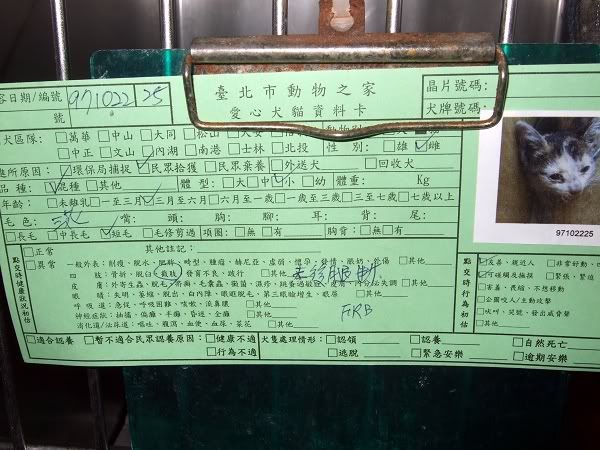 臺北市動物之家
愛心犬貓資料卡
容日期/編號 971022 25
號
晶片號碼:
犬牌號碼:
犬區隊: □萬華 □中山 □大同 □松山
□中正 □文山 □內湖 □南港 □士林 □北投 性 別: □雄 ☑雌
所原因: ☑環保局捕捉 □民眾拾獲 □民眾棄養 □外送犬 □回收犬
品種: ☑混種 □其他 體型: □大 □中 ☑小 □幼 體重: Kg
年齡: □未離乳 □一至三月 □三月至六月 □六月至一歲 □一歲至三歲 □三至七歲 □七歲以上
毛色: 三花 嘴: 頭: 胸: 腳: 耳: 背: 尾:
□長毛 □中長毛 ☑短毛 □毛修剪過 項圈: □無 □有 胸背: □無 □有
點交時健康狀況初估
□正常
□異常
其他註記:
一般外表: 削瘦、脫水、肥胖、畸型、腫瘤、赫尼亞、虛弱、懷孕、發情、眼奶、外傷 □其他
四 肢: 骨折、脫臼、截肢、發育不良、跛行 □其他
眼 睛: 失明、萎縮、脫出、白內障、眼眶脫毛、第三眼瞼增生、眼屎 □其他
呼吸道: 急促、呼吸困難、咳嗽、流鼻膿 □其他
神經症狀: 抽搐、偏癱、半癱、昏迷、全癱 □其他
消化道/泌尿道: 嘔吐、腹瀉、血便、血尿、菜花 □其他
FKB
點交時行為初估
☑友善、親近人
☑可碰觸及撫摸
□害羞、畏縮、不想移動
□企圖咬人/主動攻擊
□吠叫、哭號、發出威脅聲
□其他
□非常好動
□緊張、緊迫
97102225
□適合認養 □暫不適合民眾認養原因: □健康不適
□行為不適
犬隻處理情形: □認領 □認養 □自然死亡
□逃脫 □緊急安樂 □逾期安樂